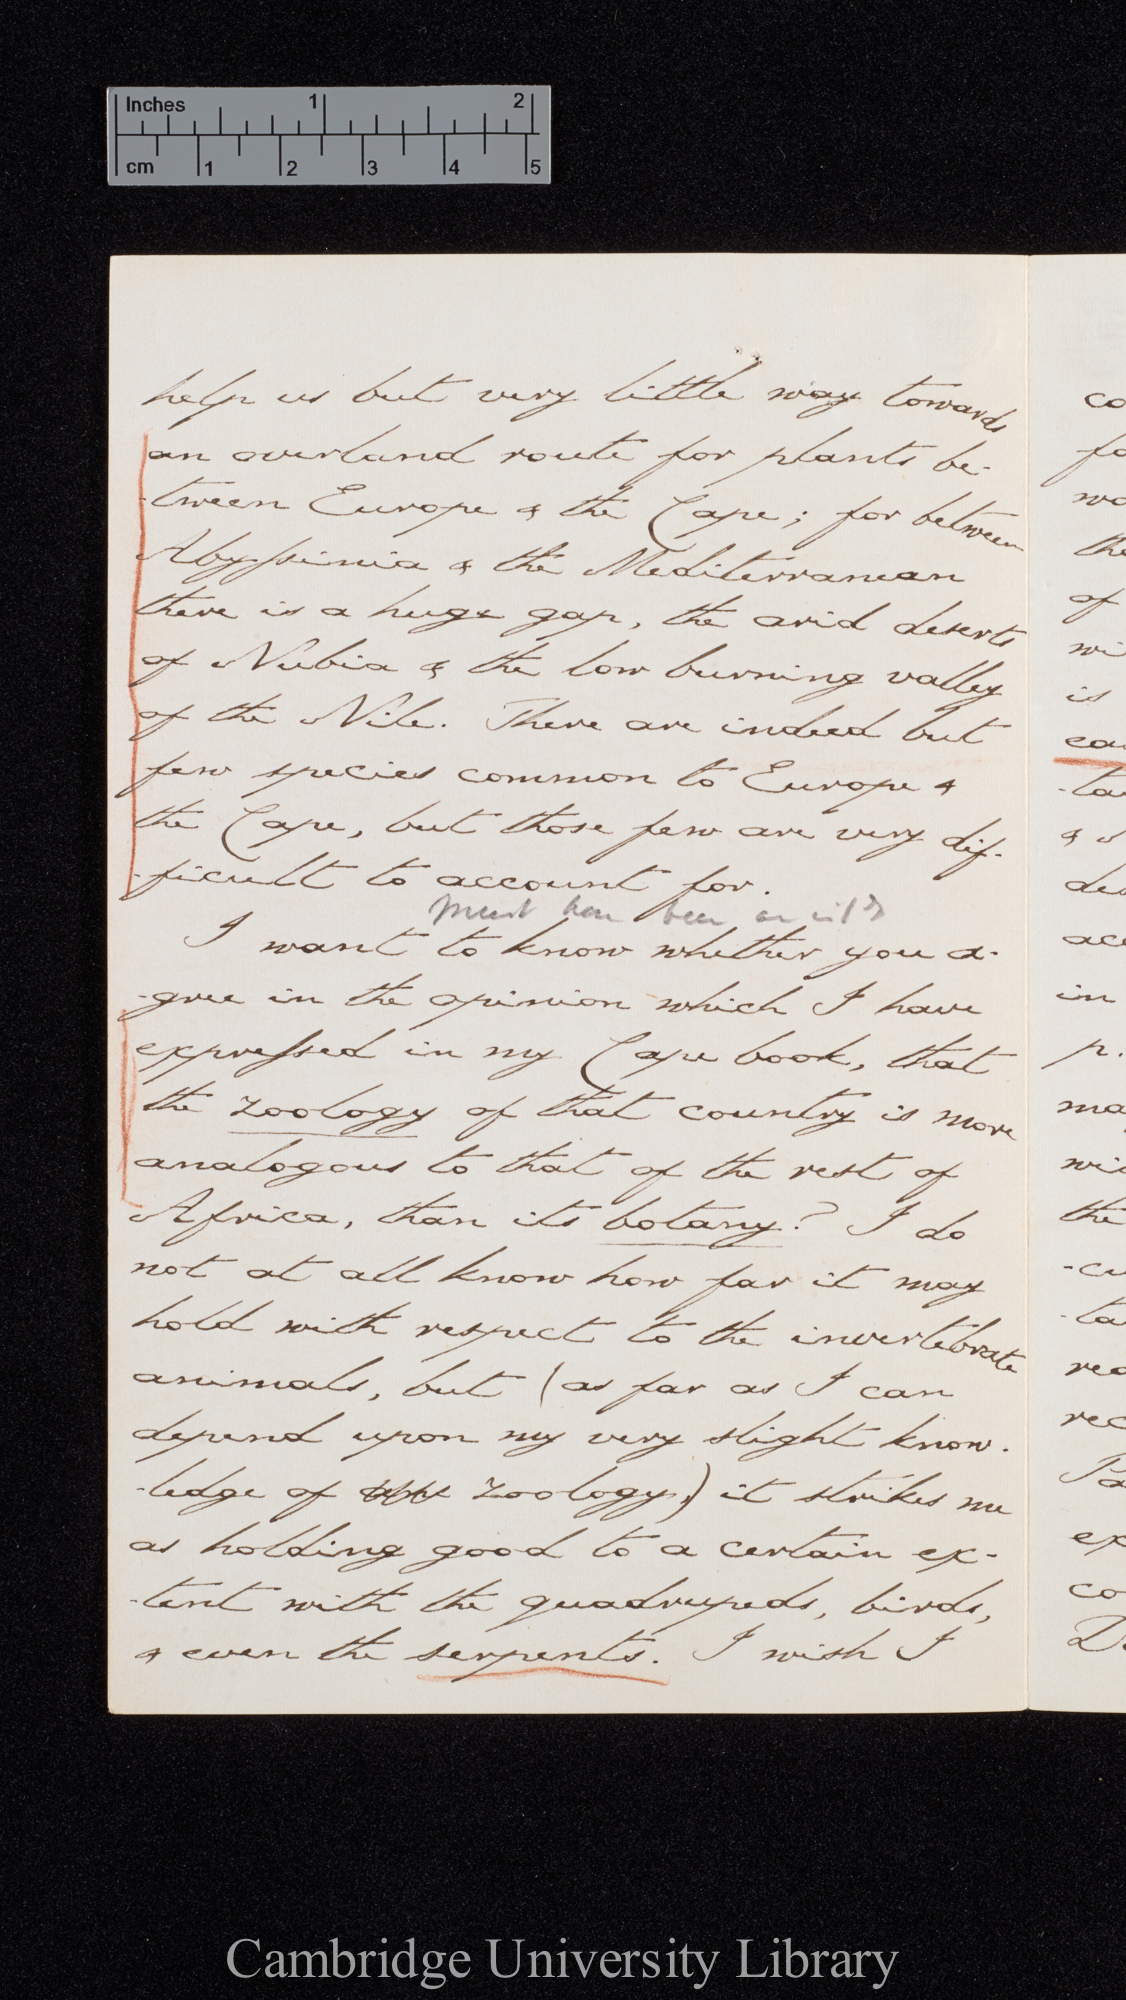 Inches 1 2
cm 1 2 3 4 5
help us but very little way towards
an overland route for plants be-
-tween Europe & the Cape; for between
Abyssinia & the Mediterranean
there is a huge gap, the arid deserts
of Nubia & the low burning valley
of the Nile. There are indeed but
few species common to Europe &
the Cape, but those few are very dif-
-ficult to account for.
must have been
I want to know whether you a-
-gree in the opinion which I have
expressed in my Cape book, that
the zoology of that country is more
analogous to that of the rest of
Africa, than its botany? I do
not at all know how far it may
hold with respect to the invertebrate
animals, but (as far as I can
depend upon my very slight know-
-ledge of zoology,) it strikes me
as holding good to a certain ex-
-tent with the quadrupeds, birds,
& even the serpents. I wish I
co
fo
wo
the
of
wi
is
ca
-ta
&
de
acc
in
p.
ma
wi
the
-cu
-ta
rea
rec
Pa
ex
co
D
Cambridge University Library